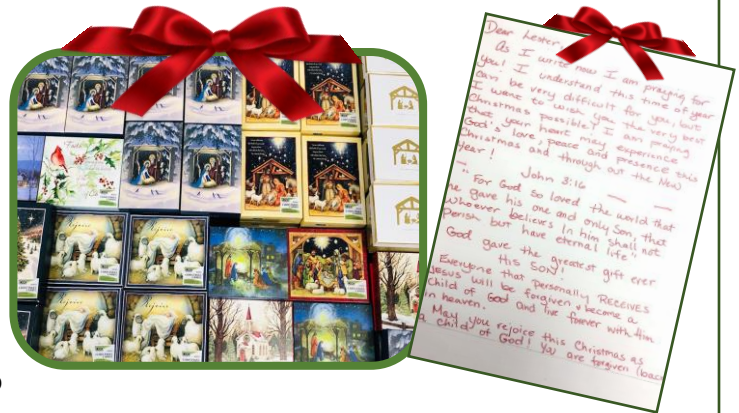 Rejoice
Rejoice
Rejoice
Rejoice
Dear Lester,
As I write now I am praying for
you! I understand this time of year
can be very difficult for you, but
I want to wish you the very best
Christmas possible! I am praying
that your heart may experience
God's love, peace and presence this
Christmas and through out the New
Year!
John 3:16
"For God so loved the world that
he gave his one and only Son, that
whoever believes in him shall not
perish but have eternal life"
God gave the greatest gift ever
HIS SON!
Everyone that personally RECEIVES
Jesus will be forgiven & become a
child of God and live forever with Him
in heaven.
May you rejoice this Christmas as
a child of God! You are forgiven (back